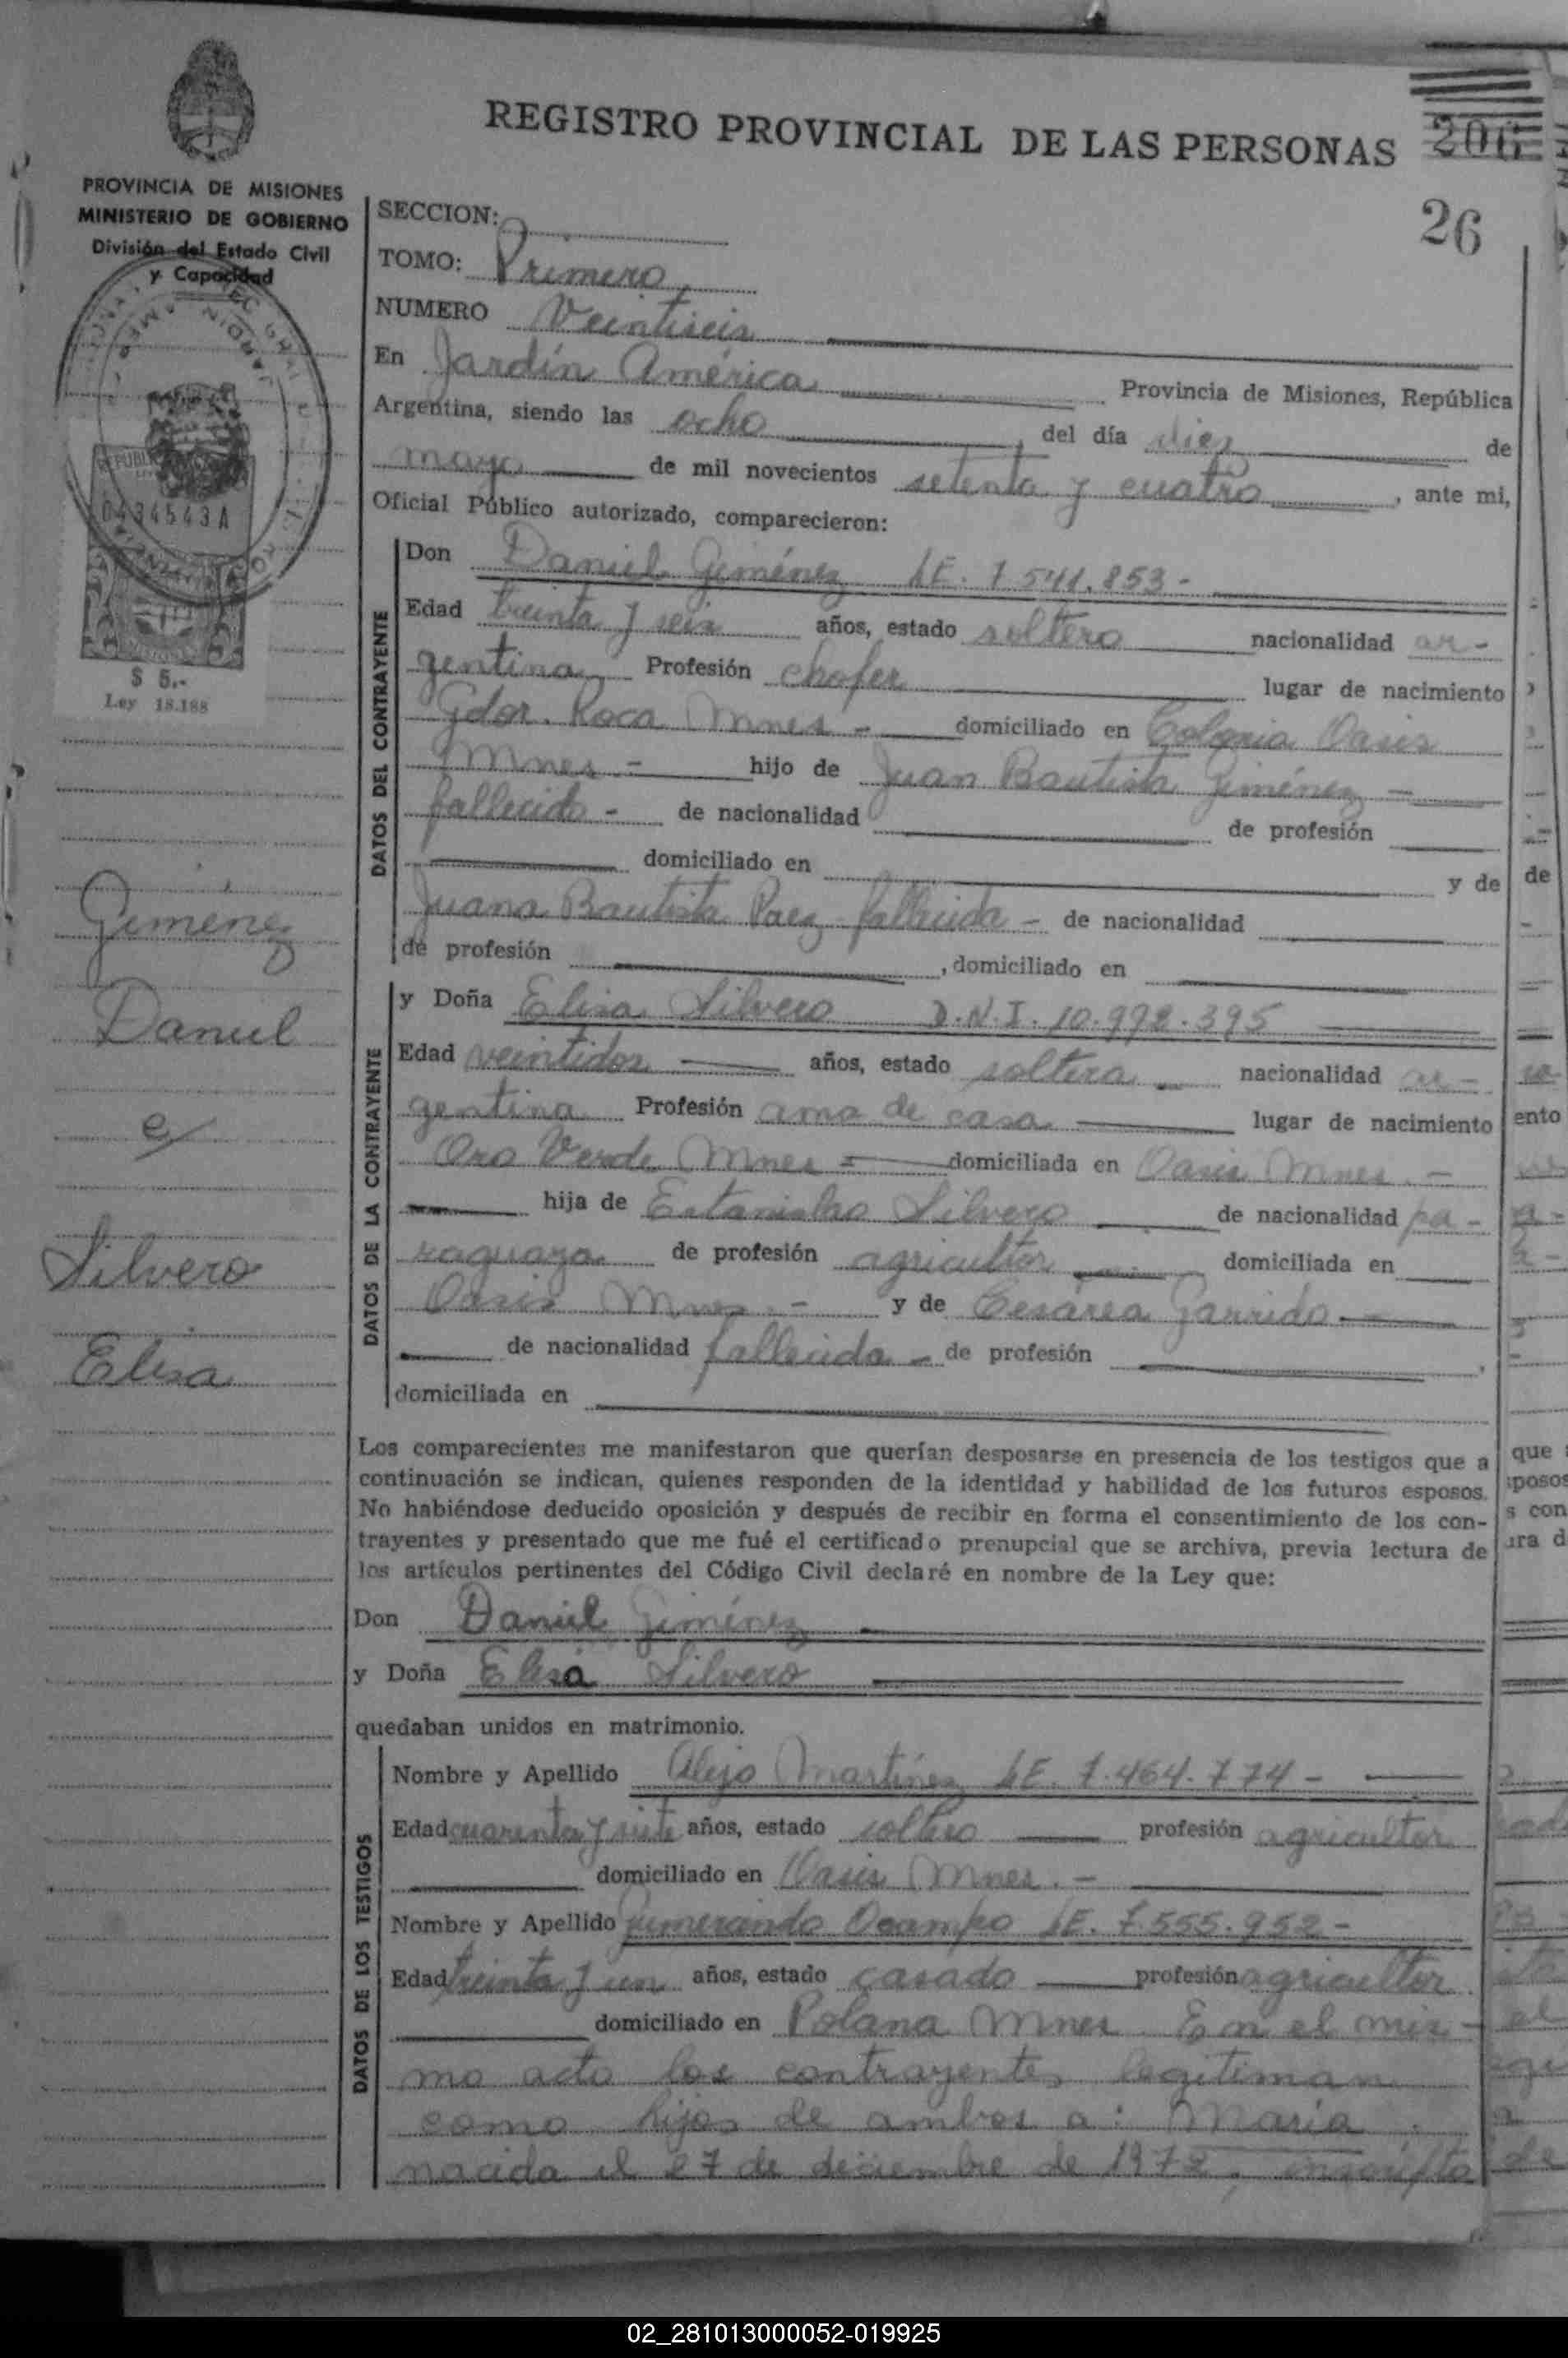 REGISTRO PROVINCIAL DE LAS PERSONAS
206
26
PROVINCIA DE MISIONES
MINISTERIO DE GOBIERNO
División del Estado Civil
y Capacidad
0434543A
$ 5.-
Ley 18.188
Giménez
Daniel
e/
Silvero
Elisa
SECCION:
TOMO: Primero
NUMERO Veintiseis
En Jardín América Provincia de Misiones, República
Argentina, siendo las ocho del día diez de
mayo de mil novecientos setenta y cuatro, ante mi,
Oficial Público autorizado, comparecieron:
DATOS DEL CONTRAYENTE
Don Daniel Giménez LE. 7.541.853-
Edad treinta y seis años, estado soltero nacionalidad ar-
gentina Profesión chofer lugar de nacimiento
Gdor. Roca Mnes - domiciliado en Colonia Oasis
Mnes.- hijo de Juan Bautista Giménez -
fallecido - de nacionalidad de profesión
domiciliado en y de
Juana Bautista Paez fallecida - de nacionalidad
de profesión , domiciliado en
DATOS DE LA CONTRAYENTE
y Doña Elisa Silvero D.N.I. 10.972.395
Edad veintidos años, estado soltera nacionalidad ar-
gentina Profesión ama de casa lugar de nacimiento
Oro Verde Mnes domiciliada en Oasis Mnes.-
hija de Estanislao Silvero de nacionalidad pa-
raguaya de profesión agricultor domiciliada en
Oasis Mnes.- y de Cesárea Garrido
de nacionalidad fallecida - de profesión
domiciliada en
Los comparecientes me manifestaron que querían desposarse en presencia de los testigos que a
continuación se indican, quienes responden de la identidad y habilidad de los futuros esposos.
No habiéndose deducido oposición y después de recibir en forma el consentimiento de los con-
trayentes y presentado que me fué el certificado prenupcial que se archiva, previa lectura de
los artículos pertinentes del Código Civil declaré en nombre de la Ley que:
Don Daniel Giménez
y Doña Elisa Silvero
quedaban unidos en matrimonio.
DATOS DE LOS TESTIGOS
Nombre y Apellido Alejo Martínez LE. 7.464.774-
Edad cuarenta y siete años, estado soltero profesión agricultor
domiciliado en Oasis Mnes.-
Nombre y Apellido Gumercindo Ocampo LE. 7.555.952-
Edad treinta y un años, estado casado profesión agricultor
domiciliado en Polana Mnes. En el mis-
mo acto los contrayentes legitiman
como hijos de ambos a: María
nacida el 27 de diciembre de 1972, inscripta
02_281013000052-019925